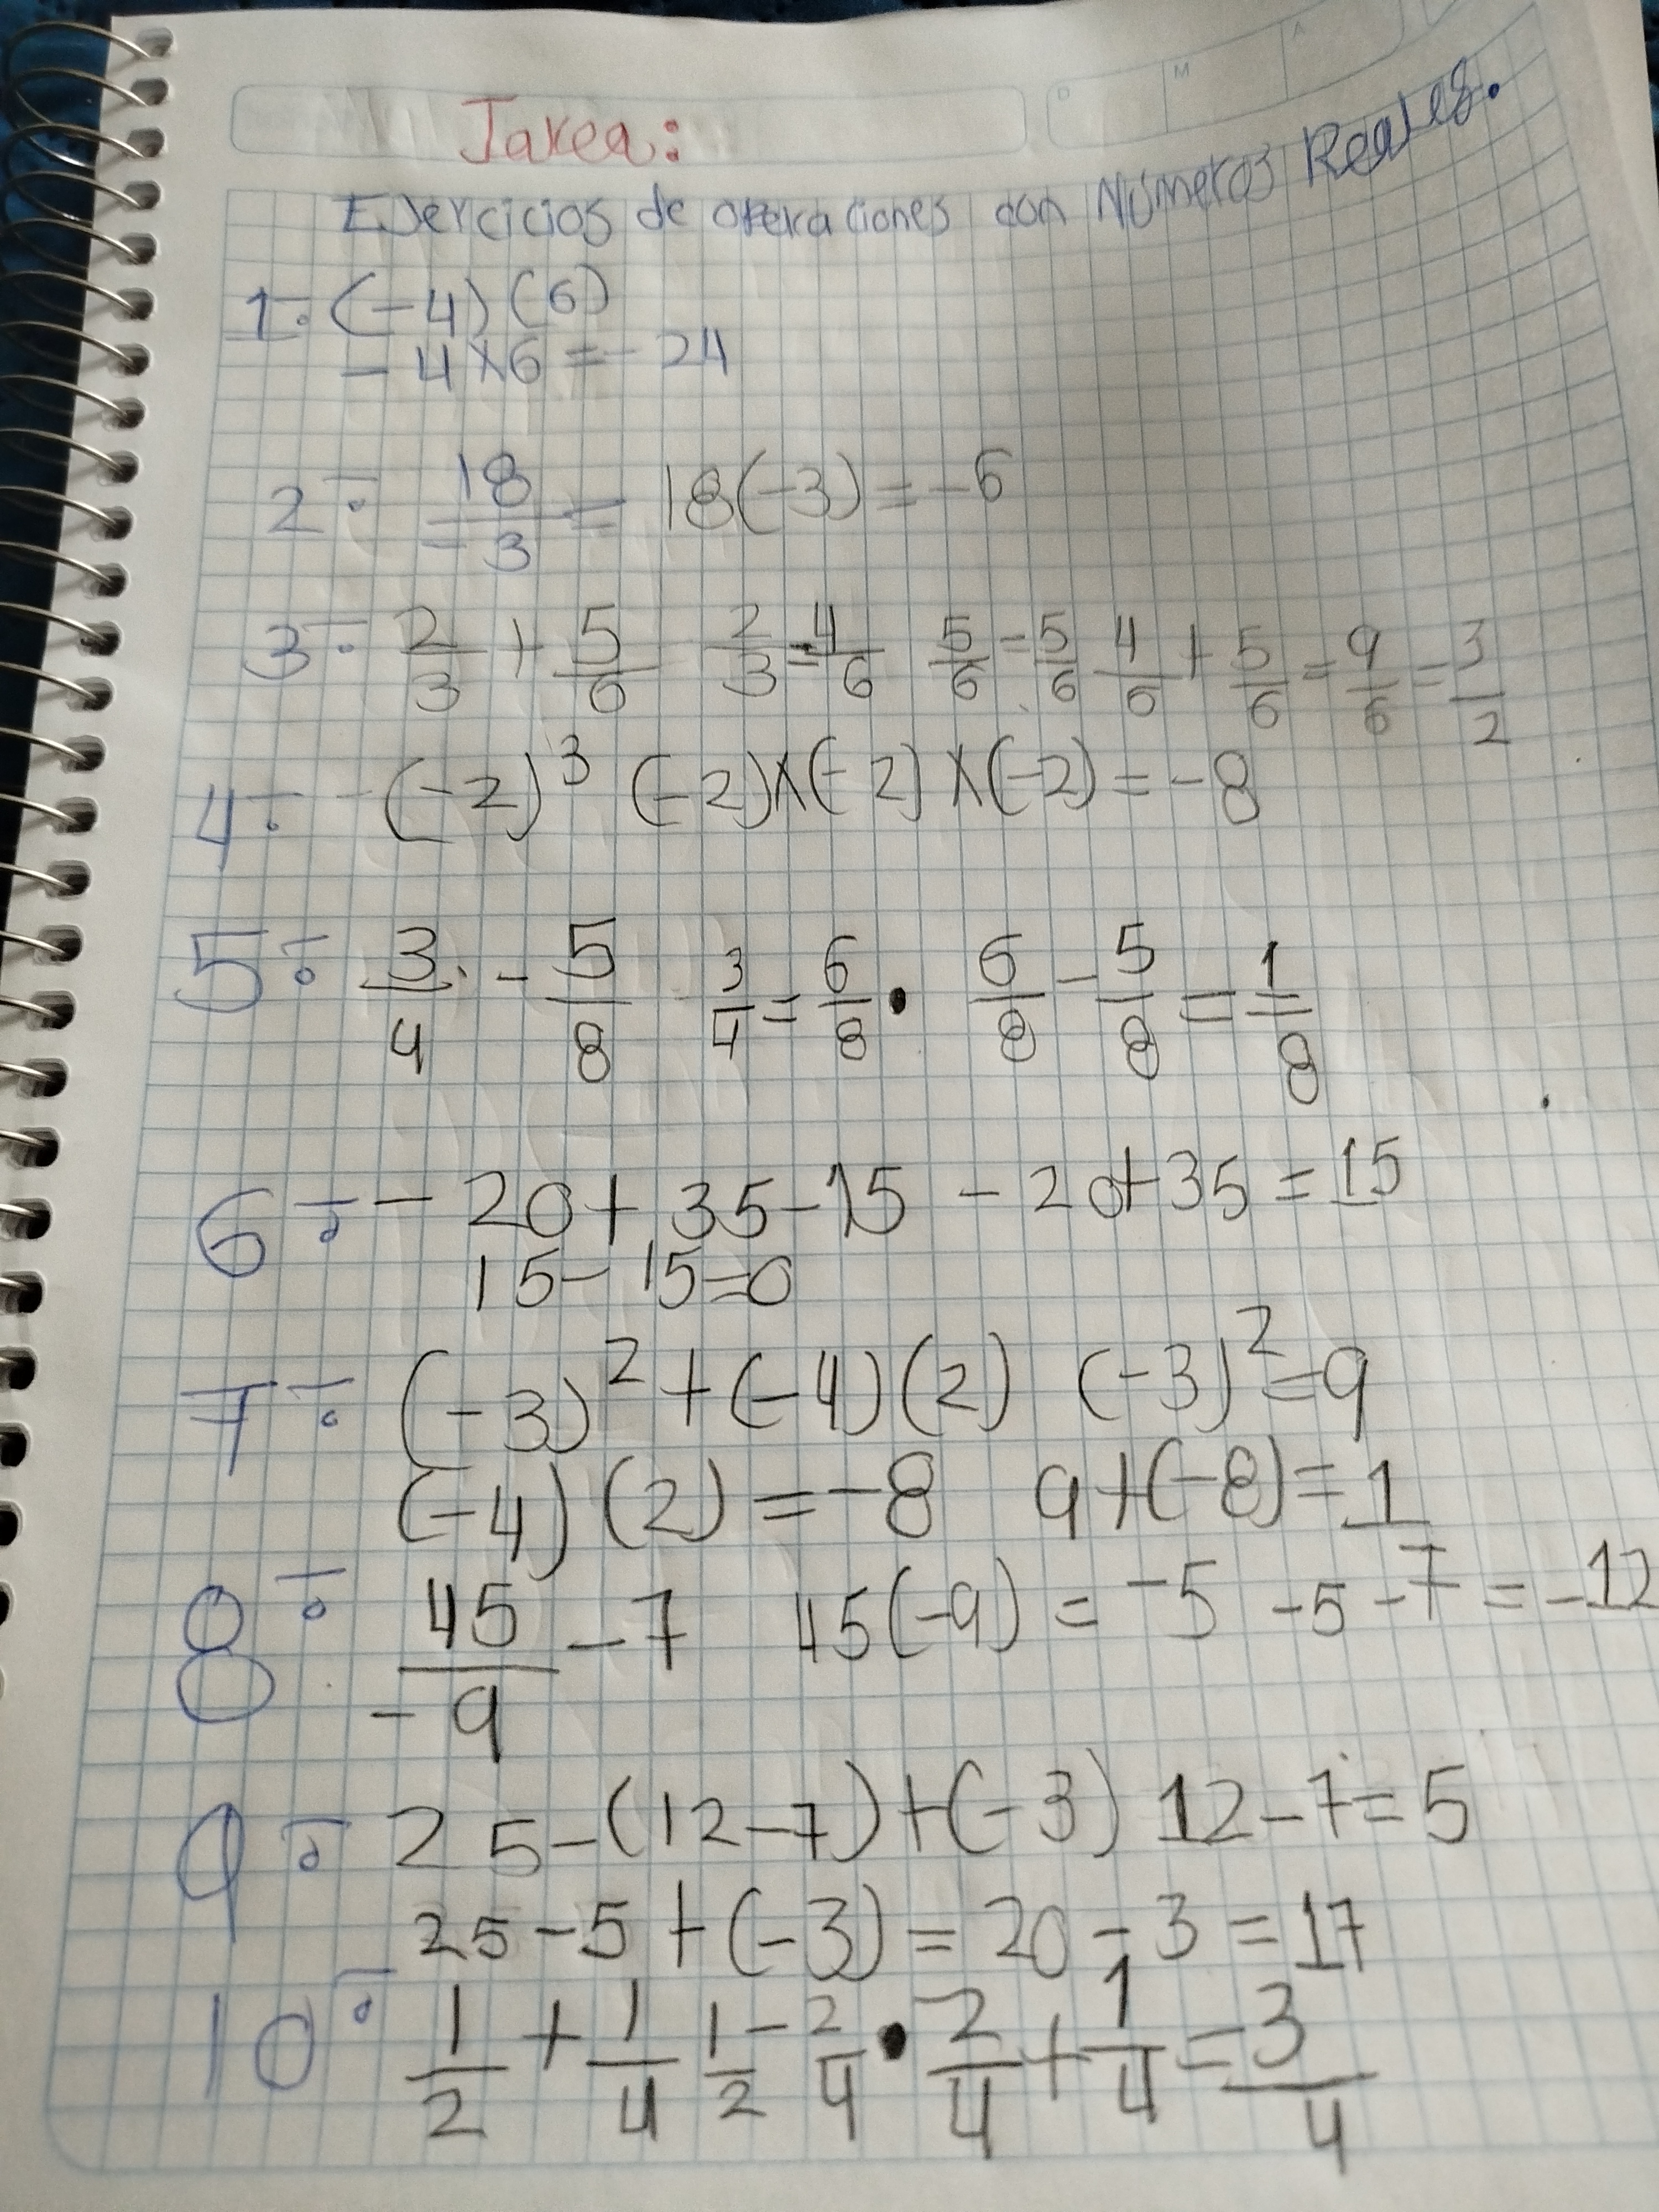 D M A
Tarea:
Ejercicios de operaciones con Números Reales.
1.- (-4)(6)
-4x6=-24
2.- 18/-3 = 18(-3)=-6
3.- 2/3 + 5/6 2/3=4/6 5/6=5/6 4/6+5/6=9/6=3/2
4.- -(-2)³ (-2)x(-2)x(-2)=-8
5.- 3/4 - 5/8 3/4=6/8 • 6/8-5/8=1/8
6.- -20+35-15 -20+35=15
15-15=0
7.- (-3)²+(-4)(2) (-3)²=9
(-4)(2)=-8 9+(-8)=1
8.- 45/-9 -7 45(-9)=-5 -5-7=-12
9.- 25-(12-7)+(-3) 12-7=5
25-5+(-3)=20-3=17
10.- 1/2+1/4 1/2=2/4 • 2/4+1/4=3/4